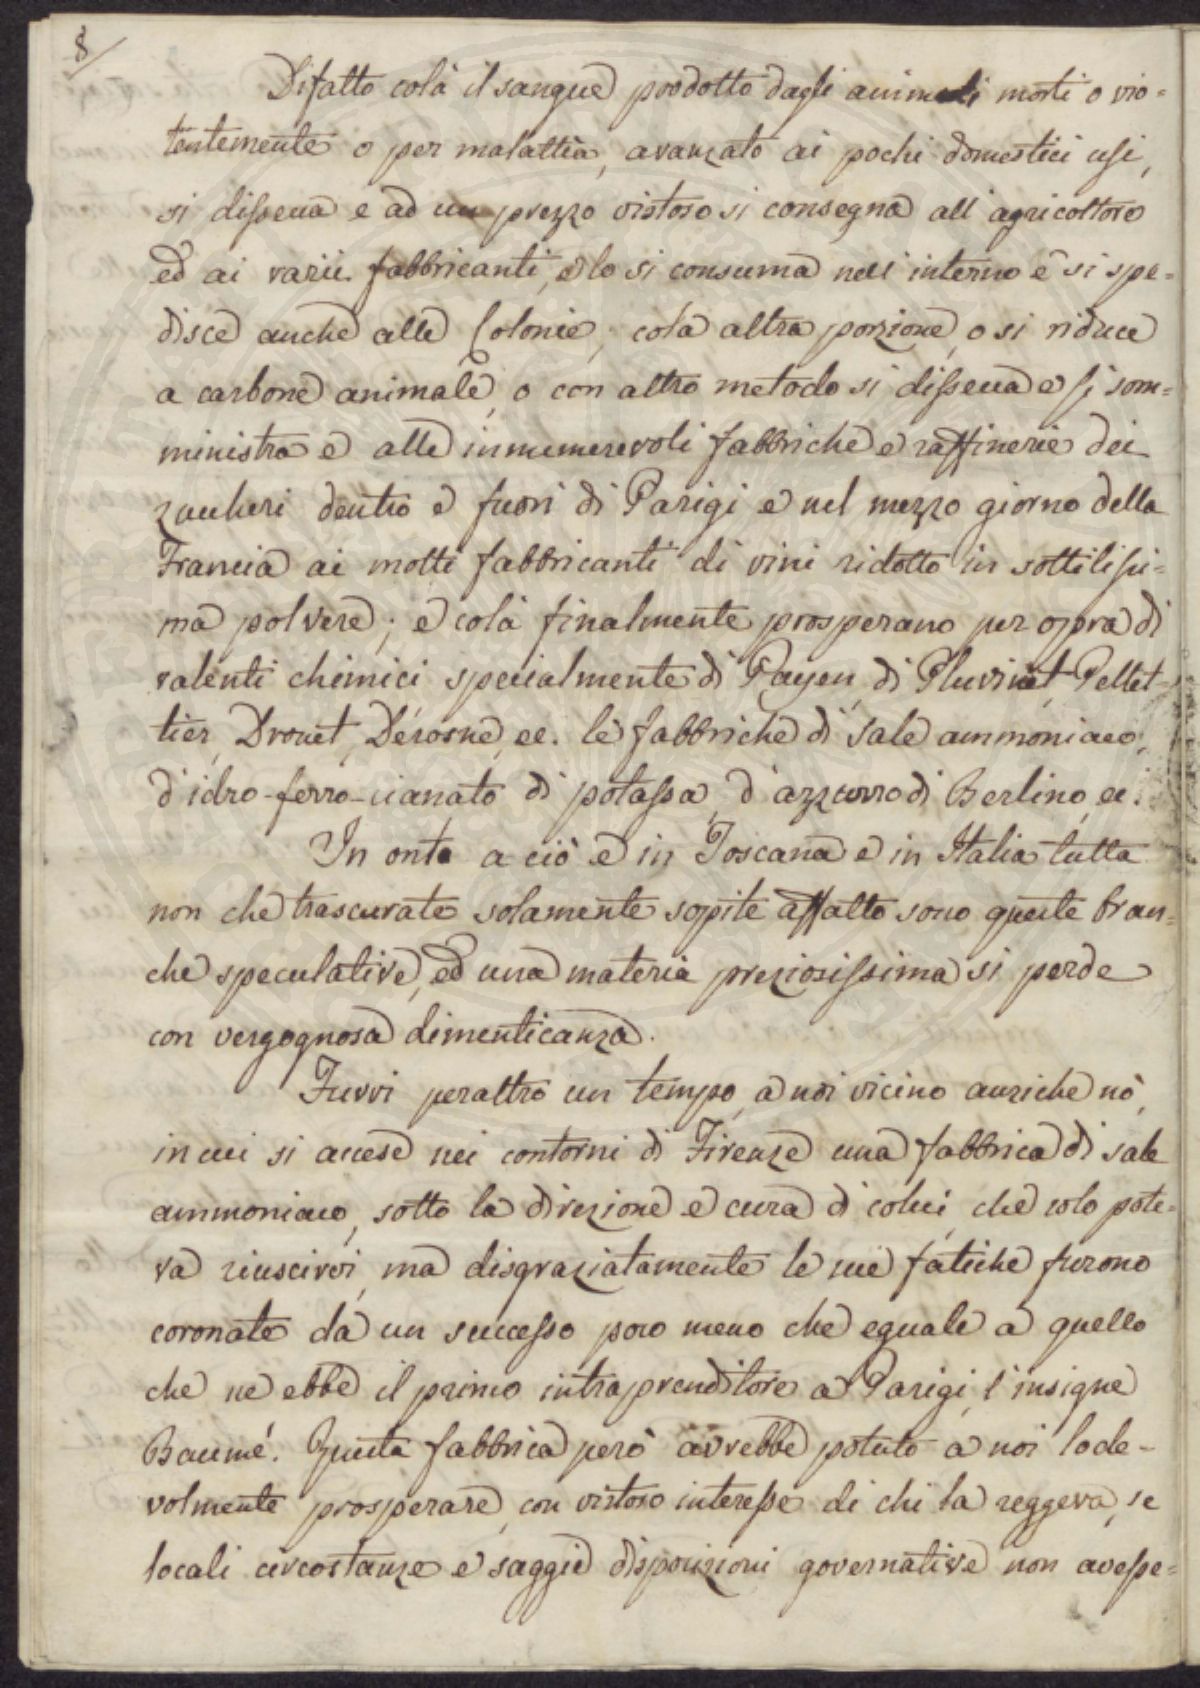 8
Difatto colà il sangue prodotto dagli animali morti o vio=
lentemente o per malattia, avanzato ai pochi domestici usi,
si dissecca e ad un prezzo vistoso si consegna all'agricoltore
ed ai varii fabbricanti, e lo si consuma nell'interno e si spe=
disce anche alle Colonie, colà altra porzione, o si riduce
a carbone animale, o con altro metodo si dissecca e si som=
ministra e alle innumerevoli fabbriche e raffinerie dei
zuccheri dentro e fuori di Parigi e nel mezzo giorno della
Francia ai molti fabbricanti di vini ridotto in sottilissi=
ma polvere; e colà finalmente prosperano per opra di
valenti chimici specialmente di Payen, di Pluvinet, Pellet=
tier, Drouet, Dérosne, ec. le fabbriche di sale ammoniaco,
d'idro-ferro-cianato di potassa, d'azzurro di Berlino, ec.
In onta a ciò e in Toscana e in Italia tutta
non che trascurate solamente sopite affatto sono queste bran=
che speculative, ed una materia preziosissima si perde
con vergognosa dimenticanza.
Fuvvi peraltro un tempo, a noi vicino anziche nò,
in cui si accese nei contorni di Firenze una fabbrica di sale
ammoniaco, sotto la direzione e cura di colui, che solo pote=
va riuscirvi, ma disgraziatamente le sue fatiche furono
coronate da un successo poco meno che eguale a quello
che ne ebbe il primo intraprenditore a Parigi, l'insigne
Baumé. Questa fabbrica però avrebbe potuto a noi lode-
volmente prosperare, con vistoso interesse di chi la reggeva, se
locali circostanze e saggie disposizioni governative non avesse=